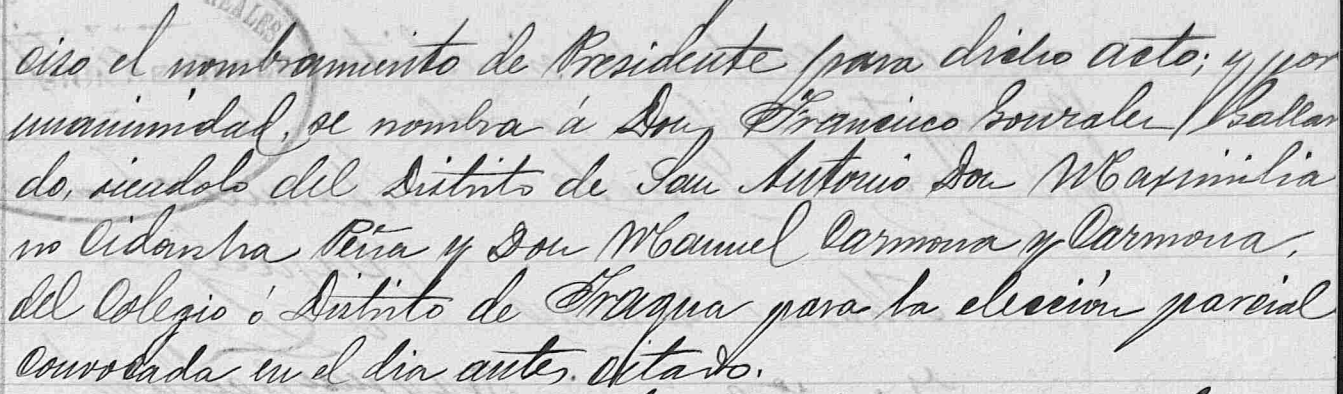 REALES
ciso el nombramiento de Presidente para dicho acto; y por
unanimidad, se nombra á Don Francisco Gonzalez Gallar
do, siendolo del Distrito de San Antonio Don Maximilia
no Cidonsha Peña y Don Manuel Carmona y Carmona,
del Colegio ó Distrito de Fragua para la elección parcial
convocada en el dia antes citado.